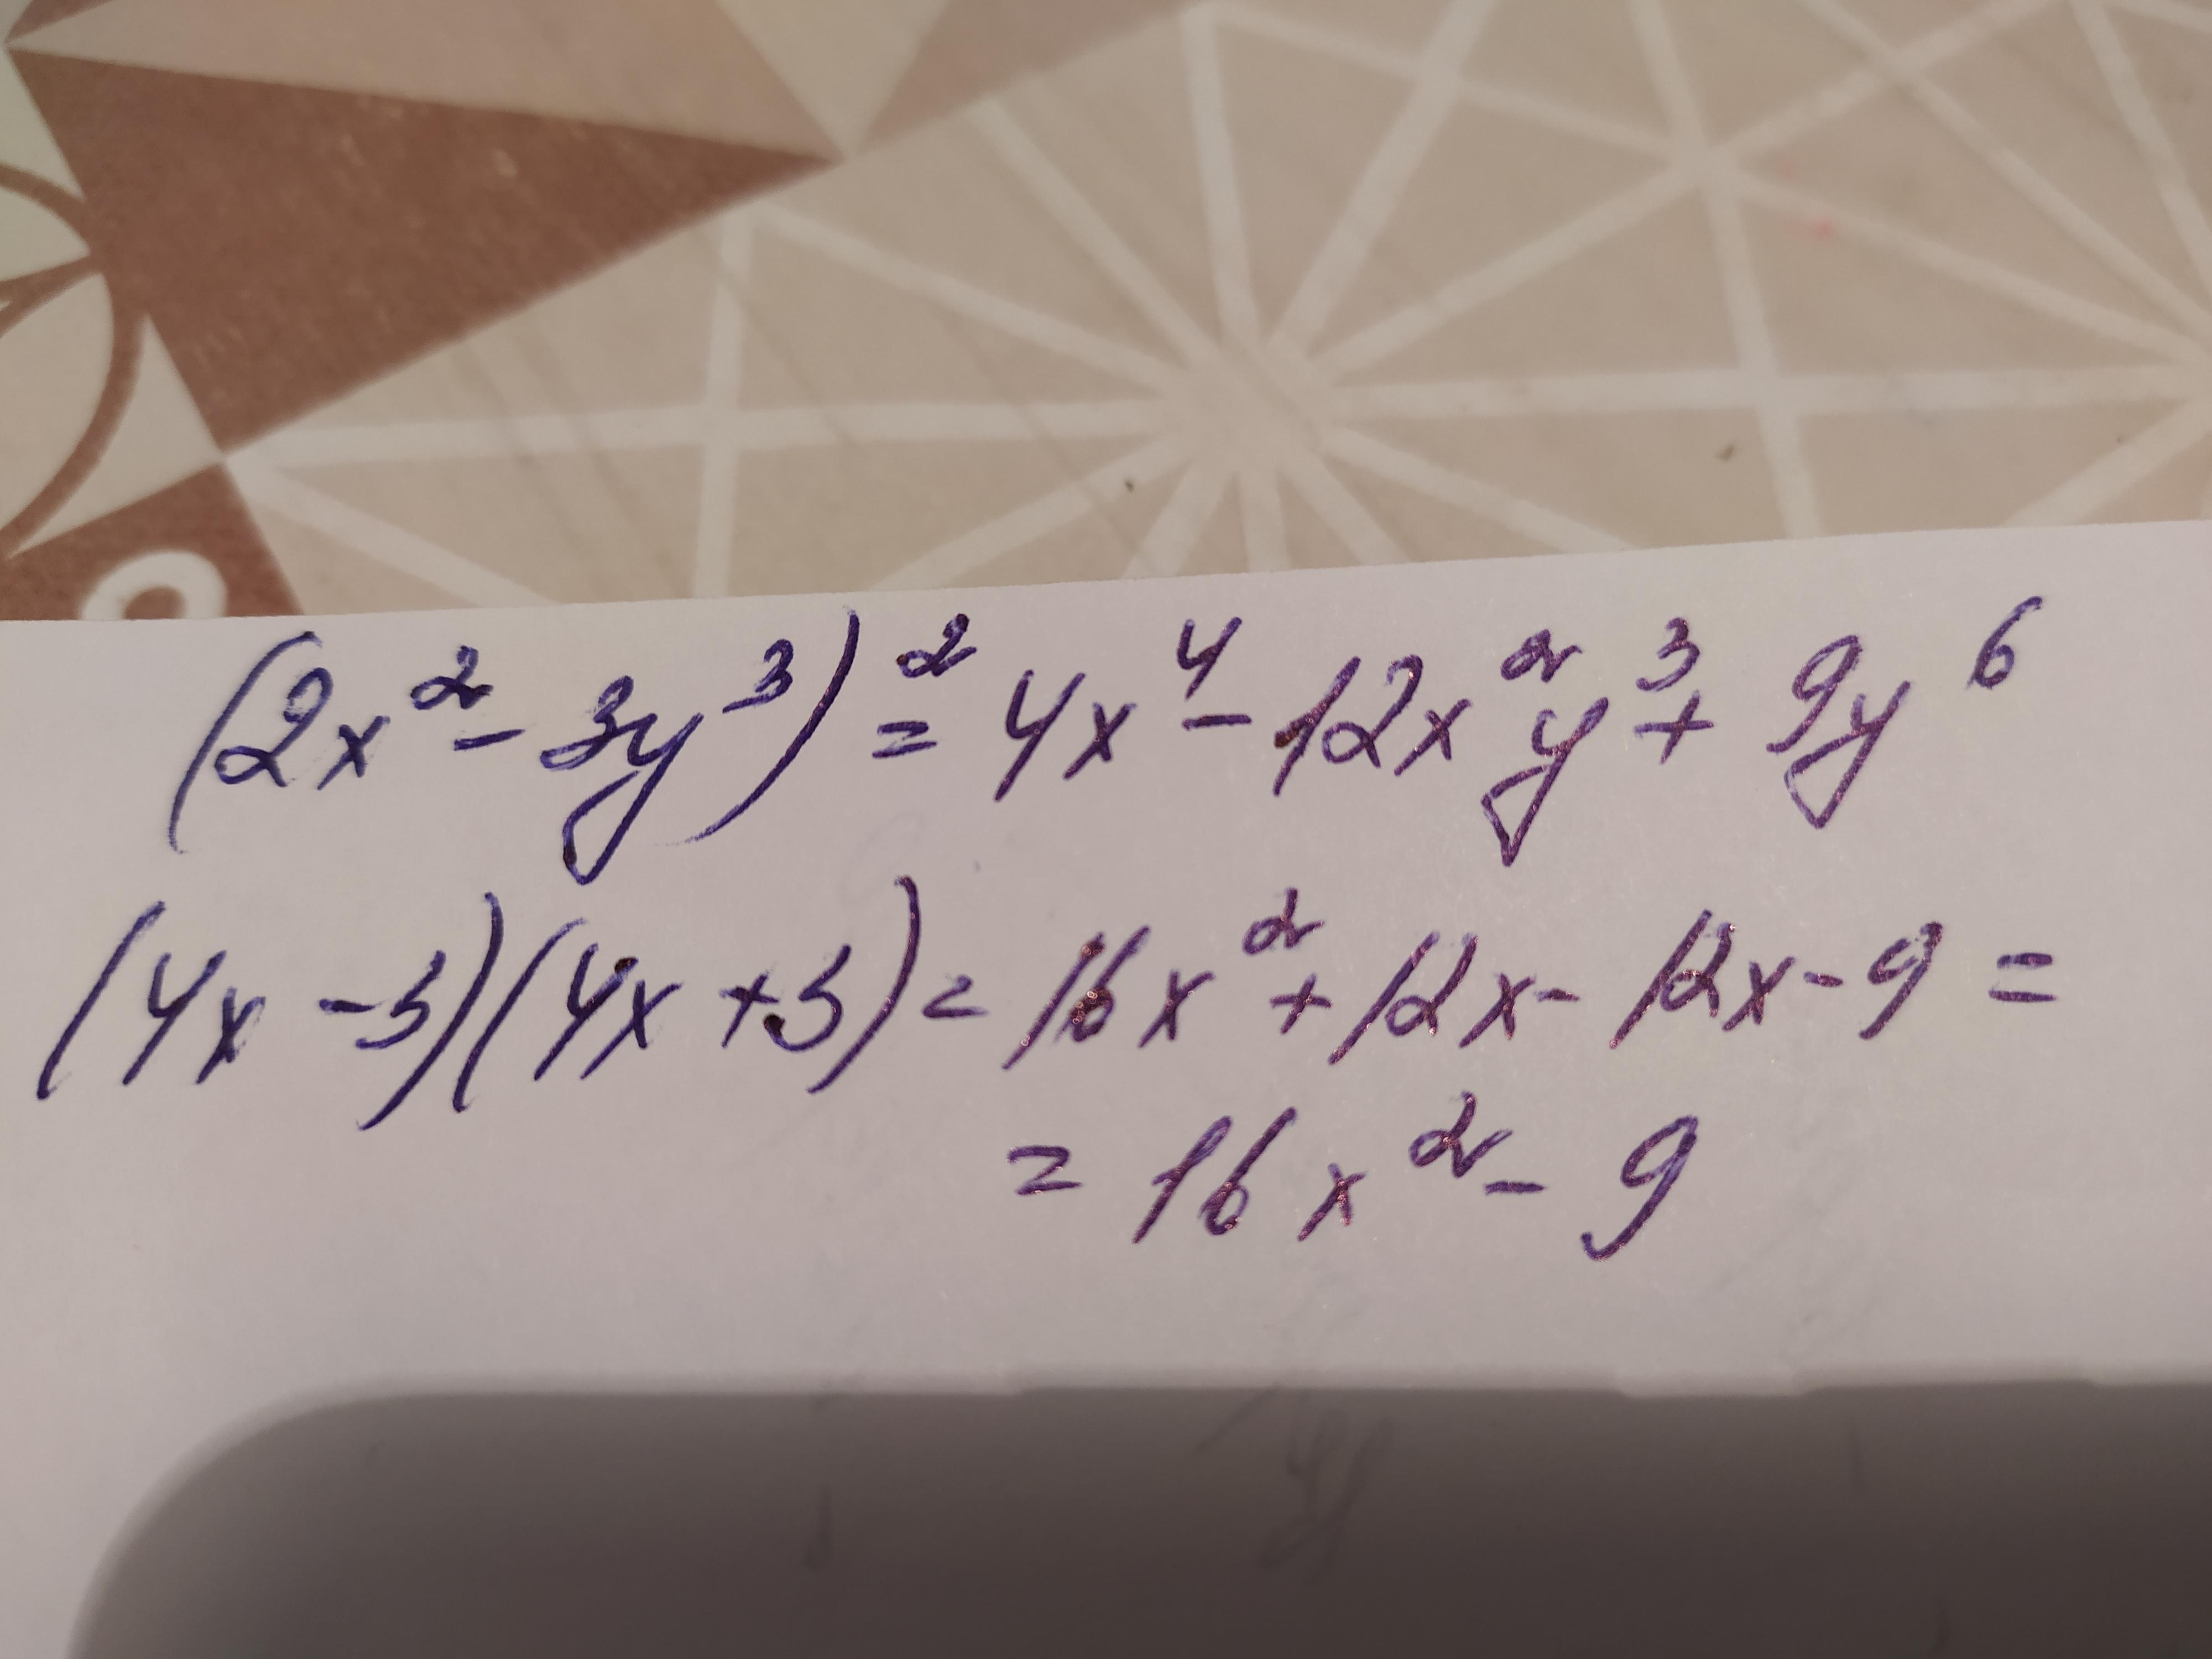 (2x²-3y³)²=4x⁴-12x²y³+9y⁶
(4x-3)(4x+3)=16x²+12x-12x-9=
=16x²-9